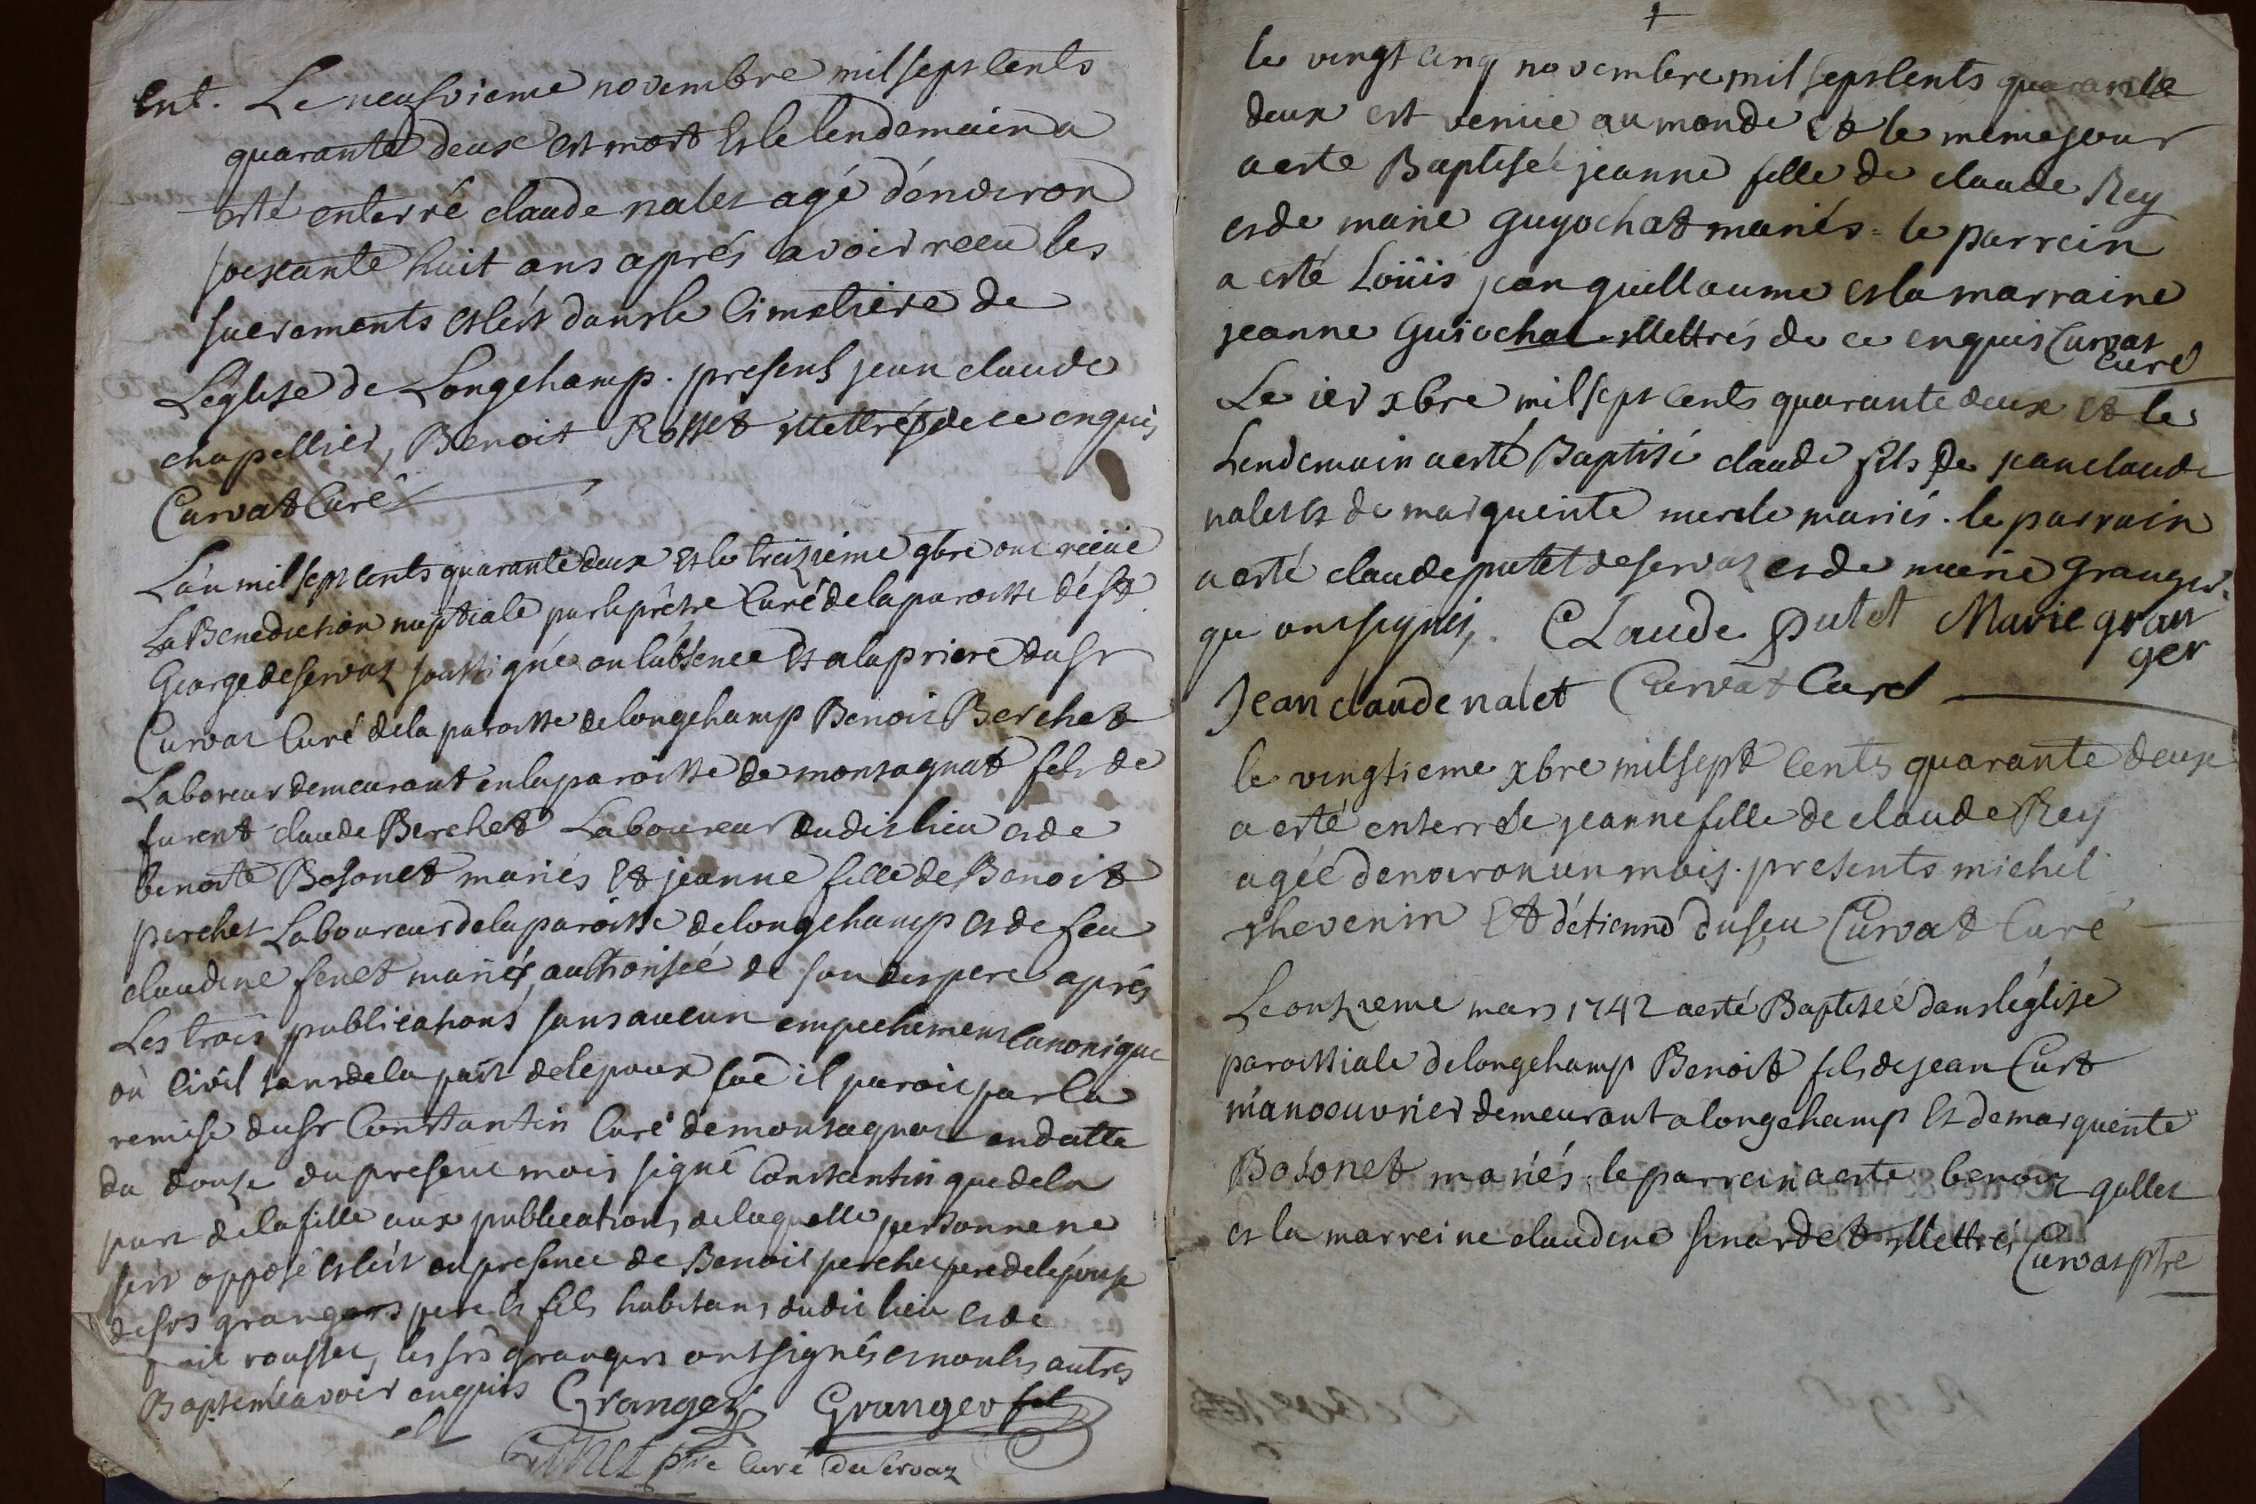 Ent. Le neufvieme novembre mil sept cents
quarante deux est mort Et le lendemain a
esté enterré claude nalet agé d'environ
soixante huit ans aprés avoir receu les
sacrements et c'est dans le cimetiere de
L'eglise de Longchamp. presens jean claude
chapellier, Benoit Rosset illettrés de ce enquis
Curvat Curé
L'an mil sept cents quarante deux et le treizieme 9bre ont receue
La Benediction nuptiale par le prêtre Curé de la paroisse de st
George de servaz soussigné en l'absence Et a la priere du sr
Curvat Curé de la paroisse de longchamp Benoit Berchet
Laboureur demeurant en la paroisse de montagnat fils de
furent claude Berchet Laboureur dudit lieu et de
benoite Bosonet mariés Et jeanne fille de Benoit
perchet Laboureur de la paroisse de longchamp et de feu
claudine fenet mariés, authorisée de son dit pere aprés
Les trois publications sans aucun empechement canonique
ou civil tant de la part de l'epoux il paroit par la
remise du sr Constantin Curé de montagnat en datte
du douze du present mois signé Constantin que de la
part de la fille aux publications de laquelle personne ne
s'est opposé et c'est en presence de Benoit perchet pere de l'epouse
de srs grangers pere et fils habitans dudit lieu et de
rousset, les srs Grangers ont signés et non les autres
enquis Granger Granger fils
ptre Curé de servaz
+
le vingt cinq novembre mil sept cents quarante
deux est venue au monde Et le meme jour
a esté Baptisée jeanne fille de claude Rey
et de marie guyochat mariés = le parrein
a esté Loüis jean guillaume et la marraine
jeanne Guiochat illettrés de ce enquis Curvat
Curé
Le ier xbre mil sept cents quarante deux et le
Lendemain a esté Baptisé claude fils de jean claude
nalet et de marguerite merle mariés. le parrain
a esté claude putet de servaz et de marie granger.
qui ont signés,. CLaude putet Marie gran
ger
Jean claude nalet Curvat Curé
le vingtieme xbre mil sept cents quarante deux
a esté enterrée jeanne fille de claude Rey
agée d'environ un mois. presents michel
thevenin Et d'etienne dufeu Curvat Curé
Le onzieme mars 1742 a esté Baptisée dans l'église
paroissiale de longchamp Benoit fils de jean Curt
manoeuvrier demeurant a longchamp Et de marguerite
Bosonet mariés : le parrein a esté benoit gallet
et la marreine claudine senardet illettrés Curvat ptre